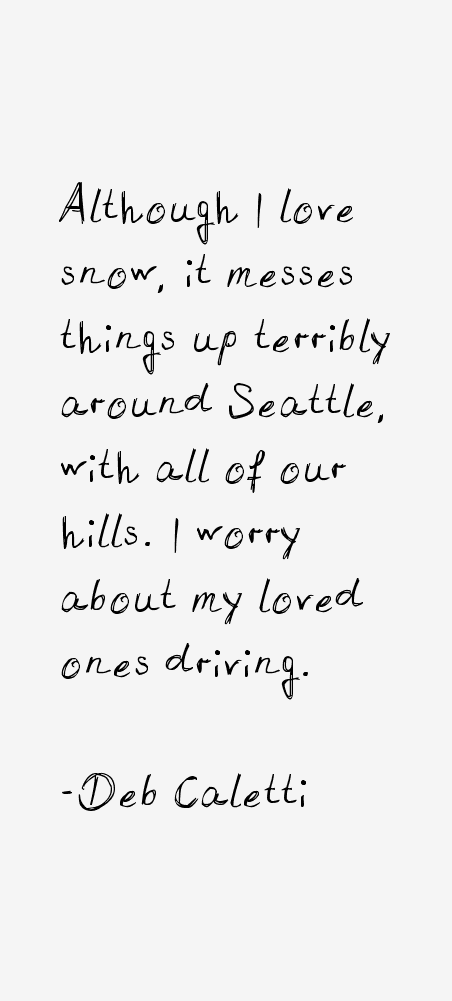 Although I love
snow, it messes
things up terribly
around Seattle,
with all of our
hills. I worry
about my loved
ones driving.
-Deb Caletti